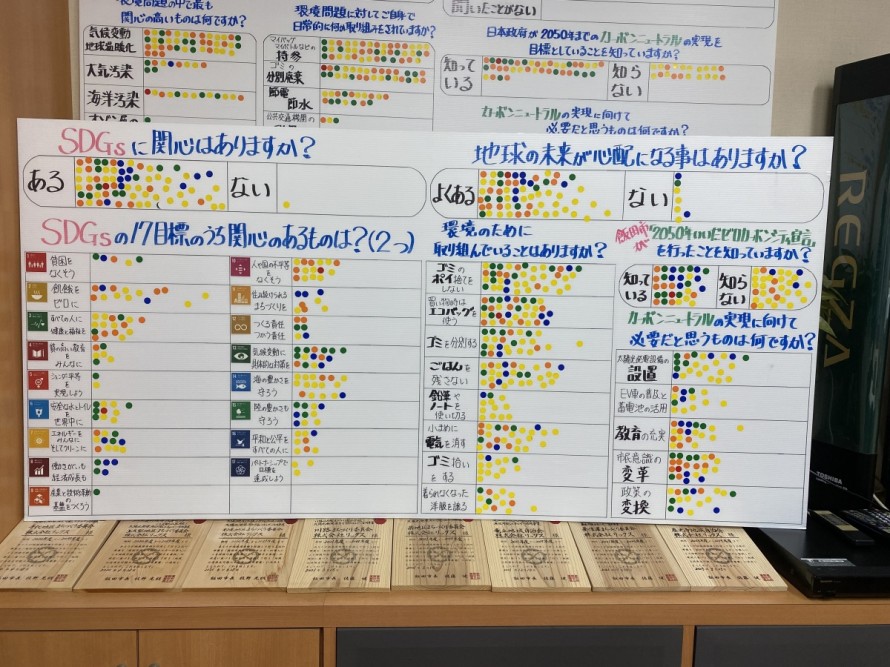 関心の高いものは何ですか?
気候変動
地球温暖化
大気汚染
海洋汚染
環境問題に対してご自身で
日常的に何か取り組みをされていますか?
マイバッグ
マイボトルなどの
持参
ゴミの
分別廃棄
節電
節水
公共交通機関の
聞いたことがない
日本政府が2050年までのカーボンニュートラルの実現を
目標としていることを知っていますか?
知って
いる
知ら
ない
カーボンニュートラルの実現に向けて
必要だと思うものは何ですか?
SDGsに関心はありますか?
ある
ない
SDGsの17目標のうち関心のあるものは?(2つ)
貧困を
なくそう
飢餓を
ゼロに
すべての人に
健康と福祉を
質の高い教育を
みんなに
ジェンダー平等を
実現しよう
安全な水とトイレを
世界中に
エネルギーを
みんなに
そしてクリーンに
働きがいも
経済成長も
産業と技術革新の
基盤をつくろう
人や国の不平等を
なくそう
住み続けられる
まちづくりを
つくる責任
つかう責任
気候変動に
具体的な対策を
海の豊かさを
守ろう
陸の豊かさも
守ろう
平和と公正を
すべての人に
パートナーシップで
目標を
達成しよう
地球の未来が心配になる事はありますか?
よくある
ない
環境のために
取り組んでいることはありますか?
ゴミの
ポイ捨てを
しない
買い物時は
エコバッグを
使う
ゴミを分別する
ごはんを
残さない
鉛筆や
ノートを
使い切る
小まめに
電気を消す
ゴミ拾い
をする
着られなくなった
洋服を譲る
飯田市が"2050年いいだゼロカーボンシティ宣言"
を行ったことを知っていますか?
知って
いる
知ら
ない
カーボンニュートラルの実現に向けて
必要だと思うものは何ですか?
太陽光発電設備の
設置
EV車の普及と
蓄電池の活用
教育の充実
市民意識の
変革
政策の
変換
REGZA
TOSHIBA